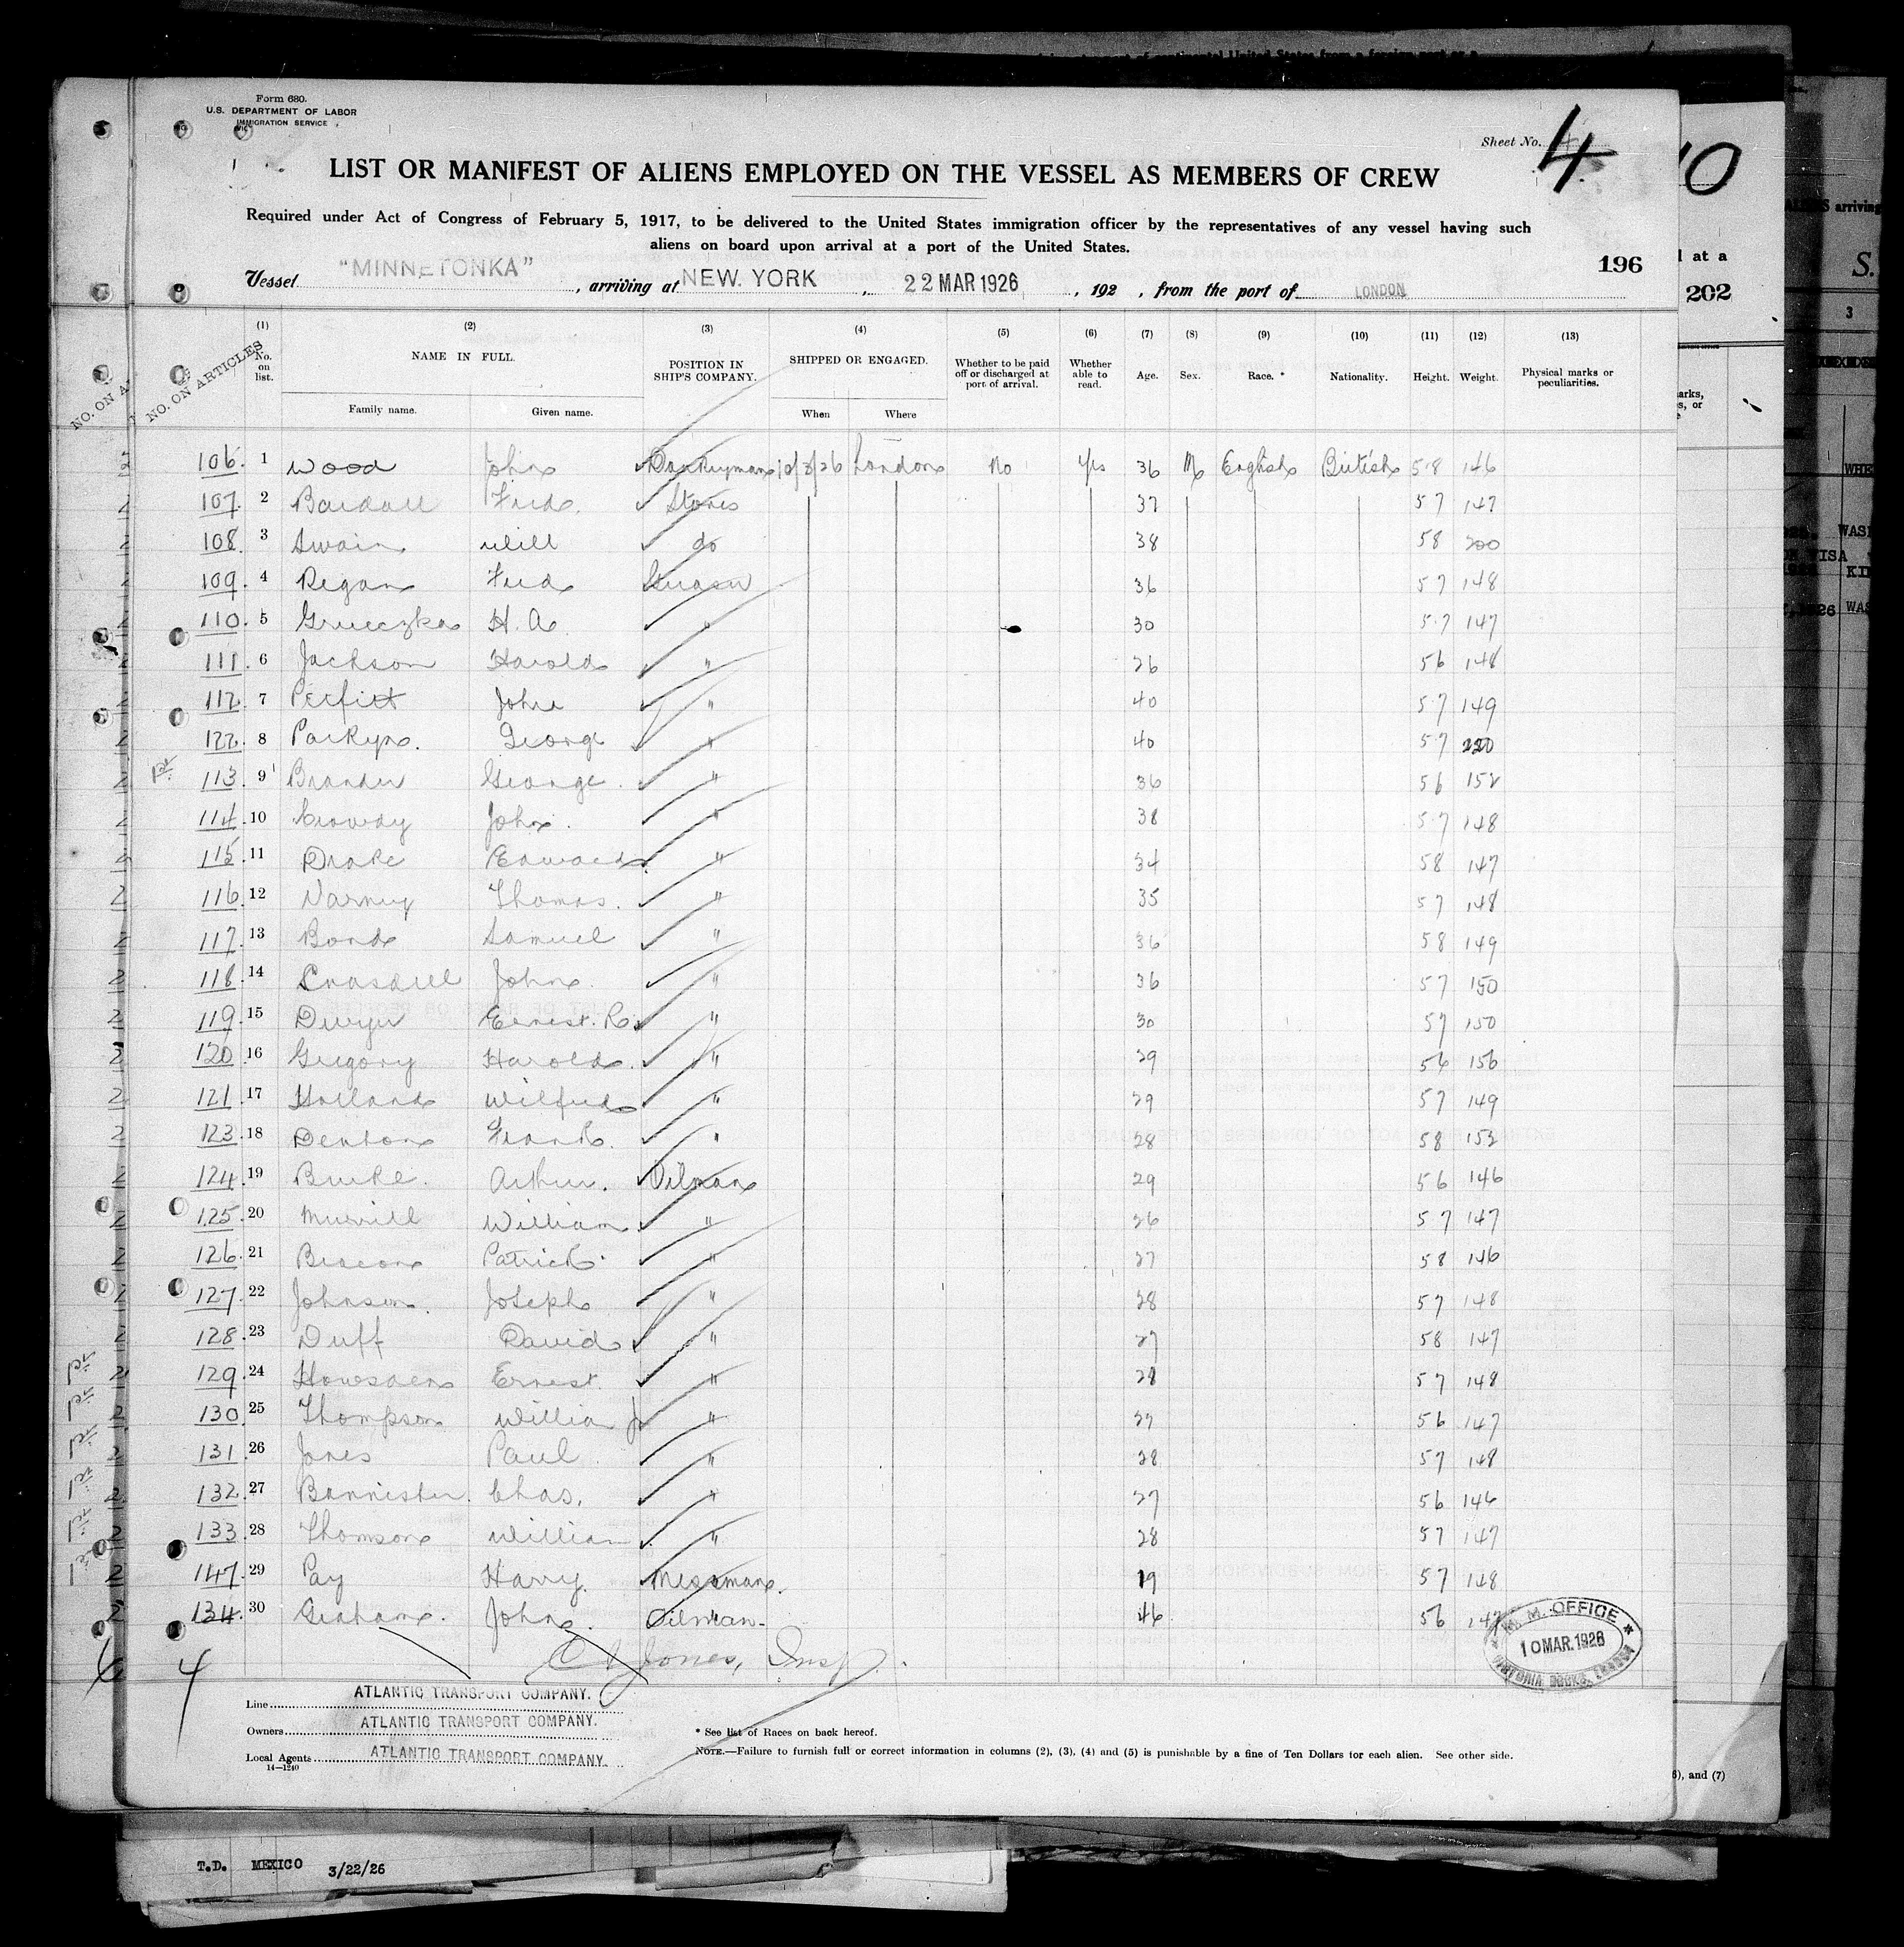 Form 680.
U.S. DEPARTMENT OF LABOR
IMMIGRATION SERVICE
Sheet No. 4
10
LIST OR MANIFEST OF ALIENS EMPLOYED ON THE VESSEL AS MEMBERS OF CREW
Required under Act of Congress of February 5, 1917, to be delivered to the United States immigration officer by the representatives of any vessel having such
aliens on board upon arrival at a port of the United States.
196
202
Vessel "MINNETONKA", arriving at NEW YORK, 22 MAR 1926, 192 , from the port of LONDON
NO. ON ARTICLES
(1) (2) (3) (4) (5) (6) (7) (8) (9) (10) (11) (12) (13)
No. on list. NAME IN FULL. POSITION IN SHIP'S COMPANY. SHIPPED OR ENGAGED. Whether to be paid off or discharged at port of arrival. Whether able to read. Age. Sex. Race.* Nationality. Height. Weight. Physical marks or peculiarities.
Family name. Given name. When Where
106. 1 Wood John Donkeyman 10/3/26 London No Yes 36 M English British 5 8 146
107. 2 Fred Stores 37 5 7 147
108. 3 Swain Will do 38 5 8 200
109. 4 Regan Fred Greaser 36 5 7 148
110. 5 H. A. " 30 5 7 147
111. 6 Jackson Harold " 26 5 6 148
112. 7 Perfitt John " 40 5 7 149
122. 8 Parkyn. George " 40 5 7 220
113. 9 Brander George " 36 5 6 152
114. 10 Crowdy John " 38 5 7 148
115. 11 Drake Edward " 34 5 8 147
116. 12 Varney Thomas. " 35 5 7 148
117. 13 Bond Samuel " 36 5 8 149
118. 14 John. " 36 5 7 150
119. 15 Dwyer Ernest. R. " 30 5 7 150
120. 16 Gregory Harold. " 29 5 6 156
121. 17 Holland Wilfred " 29 5 7 149
123. 18 Denton Frank. " 28 5 8 152
124. 19 Burke. Arthur. Oilman 29 5 6 146
125. 20 William. " 26 5 7 147
126. 21 Patrick " 27 5 8 146
127. 22 Johnson. Joseph " 28 5 7 148
128. 23 Duff David " 27 5 8 147
129. 24 Ernest. " 28 5 7 148
130. 25 Thompson William J " 27 5 6 147
131. 26 Jones Paul " 28 5 7 148
132. 27 Bannister. Chas. " 27 5 6 146
133. 28 Thomson William " 28 5 7 147
147. 29 Pay Harry. Messman. 19 5 7 148
134. 30 Graham. John. Oilman 46 5 6 147
4 Jones, Insp.
M. M. OFFICE
10 MAR. 1926
VICTORIA DOCKS, LONDON
Line ATLANTIC TRANSPORT COMPANY.
Owners ATLANTIC TRANSPORT COMPANY.
Local Agents ATLANTIC TRANSPORT COMPANY.
14—1240
* See list of Races on back hereof.
NOTE.—Failure to furnish full or correct information in columns (2), (3), (4) and (5) is punishable by a fine of Ten Dollars for each alien. See other side.
, and (7)
T.D. MEXICO 3/22/26